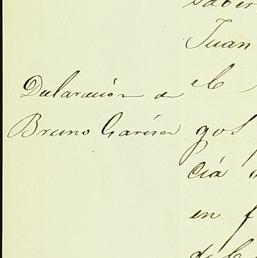 saber
Juan
Declaración de el
Bruno García gos
cía
en f